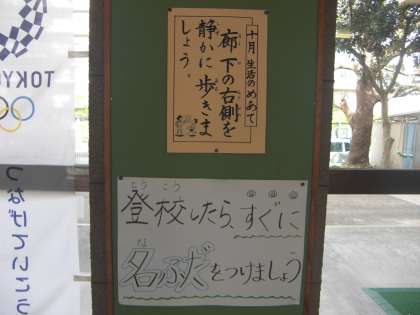 十月 生活のめあて
廊下の右側を
静かに歩きま
しょう。
とうこう
登校したら、すぐに
な
名ふだをつけましょう
TOKYO
つなげていこう